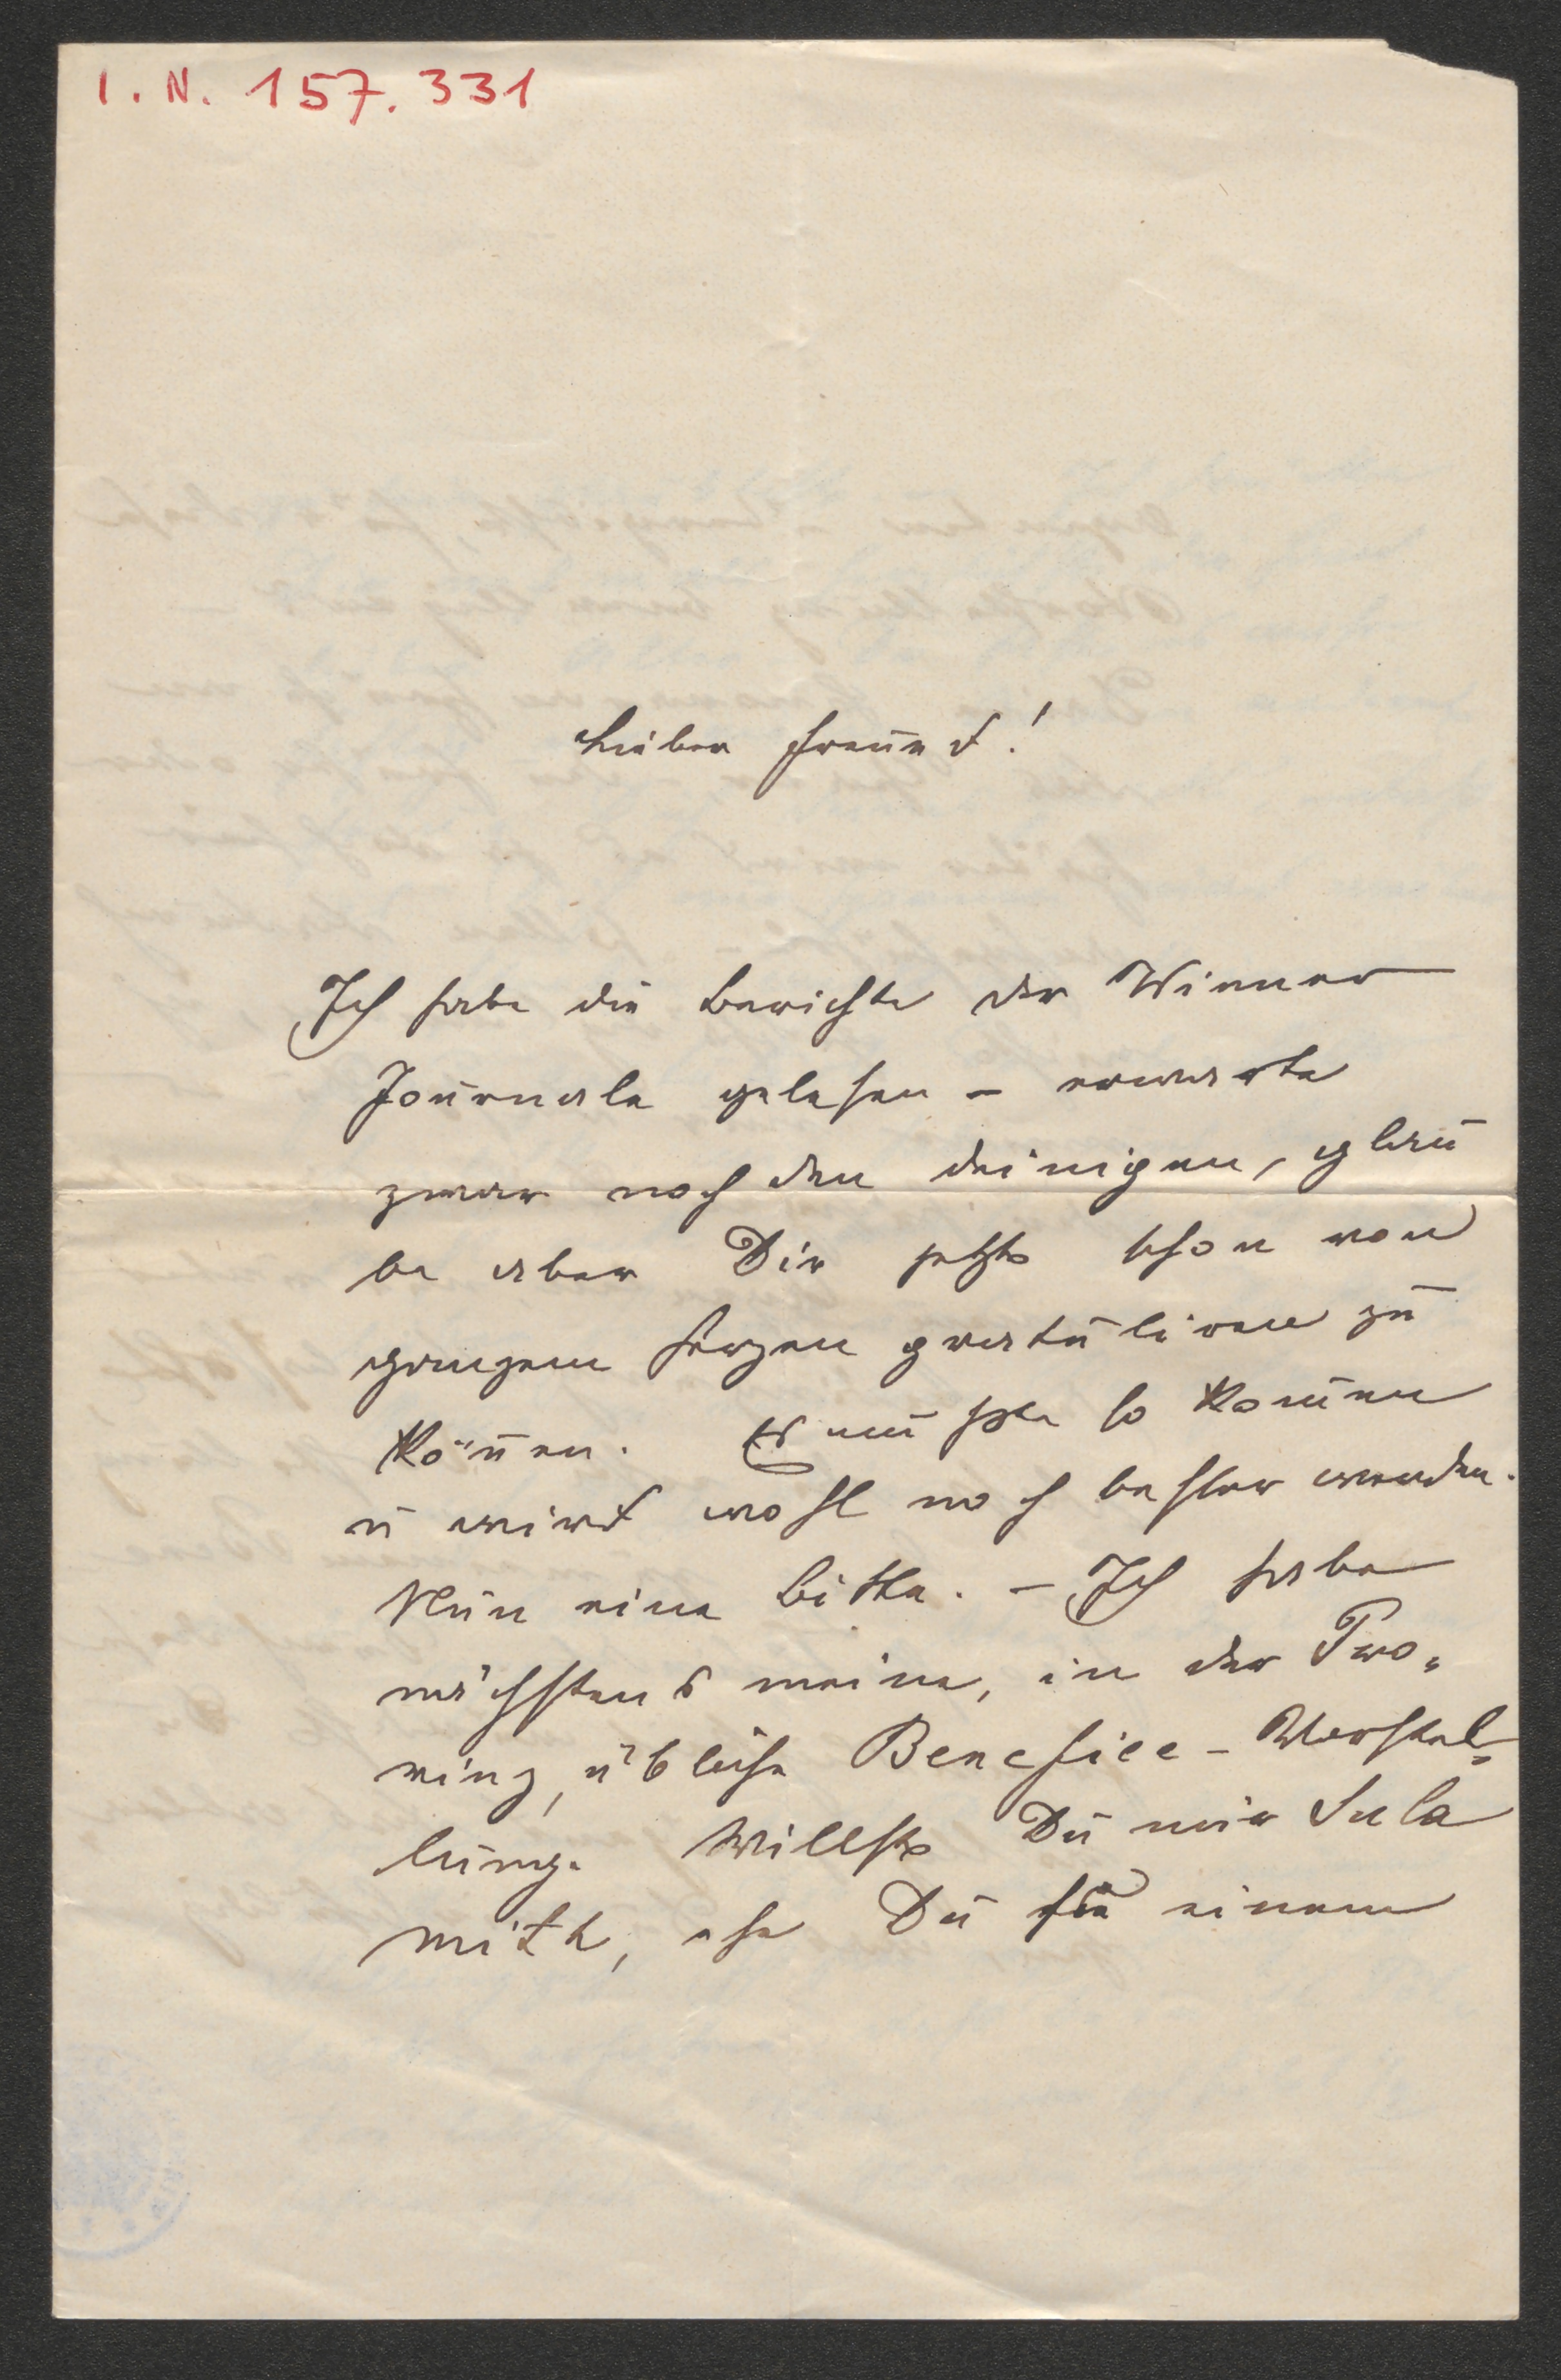 I. N. 157.331
Lieber Freund!
Ich habe die Berichte der Wiener
Journale gelesen – erwarte
zwar noch den deinigen, glau
be aber Dir jetzt schon von
ganzem Herzen gratuliren zu
kön̅en. Es mußte so kom̅en
u wird wohl noch besser werden.
Nun eine Bitte. – Ich habe
nächstens meine, in der Pro„
vinz, übliche Benefice-Vorstel„
lung. Willst Du mir Sula
mith, ehe Du sie einem